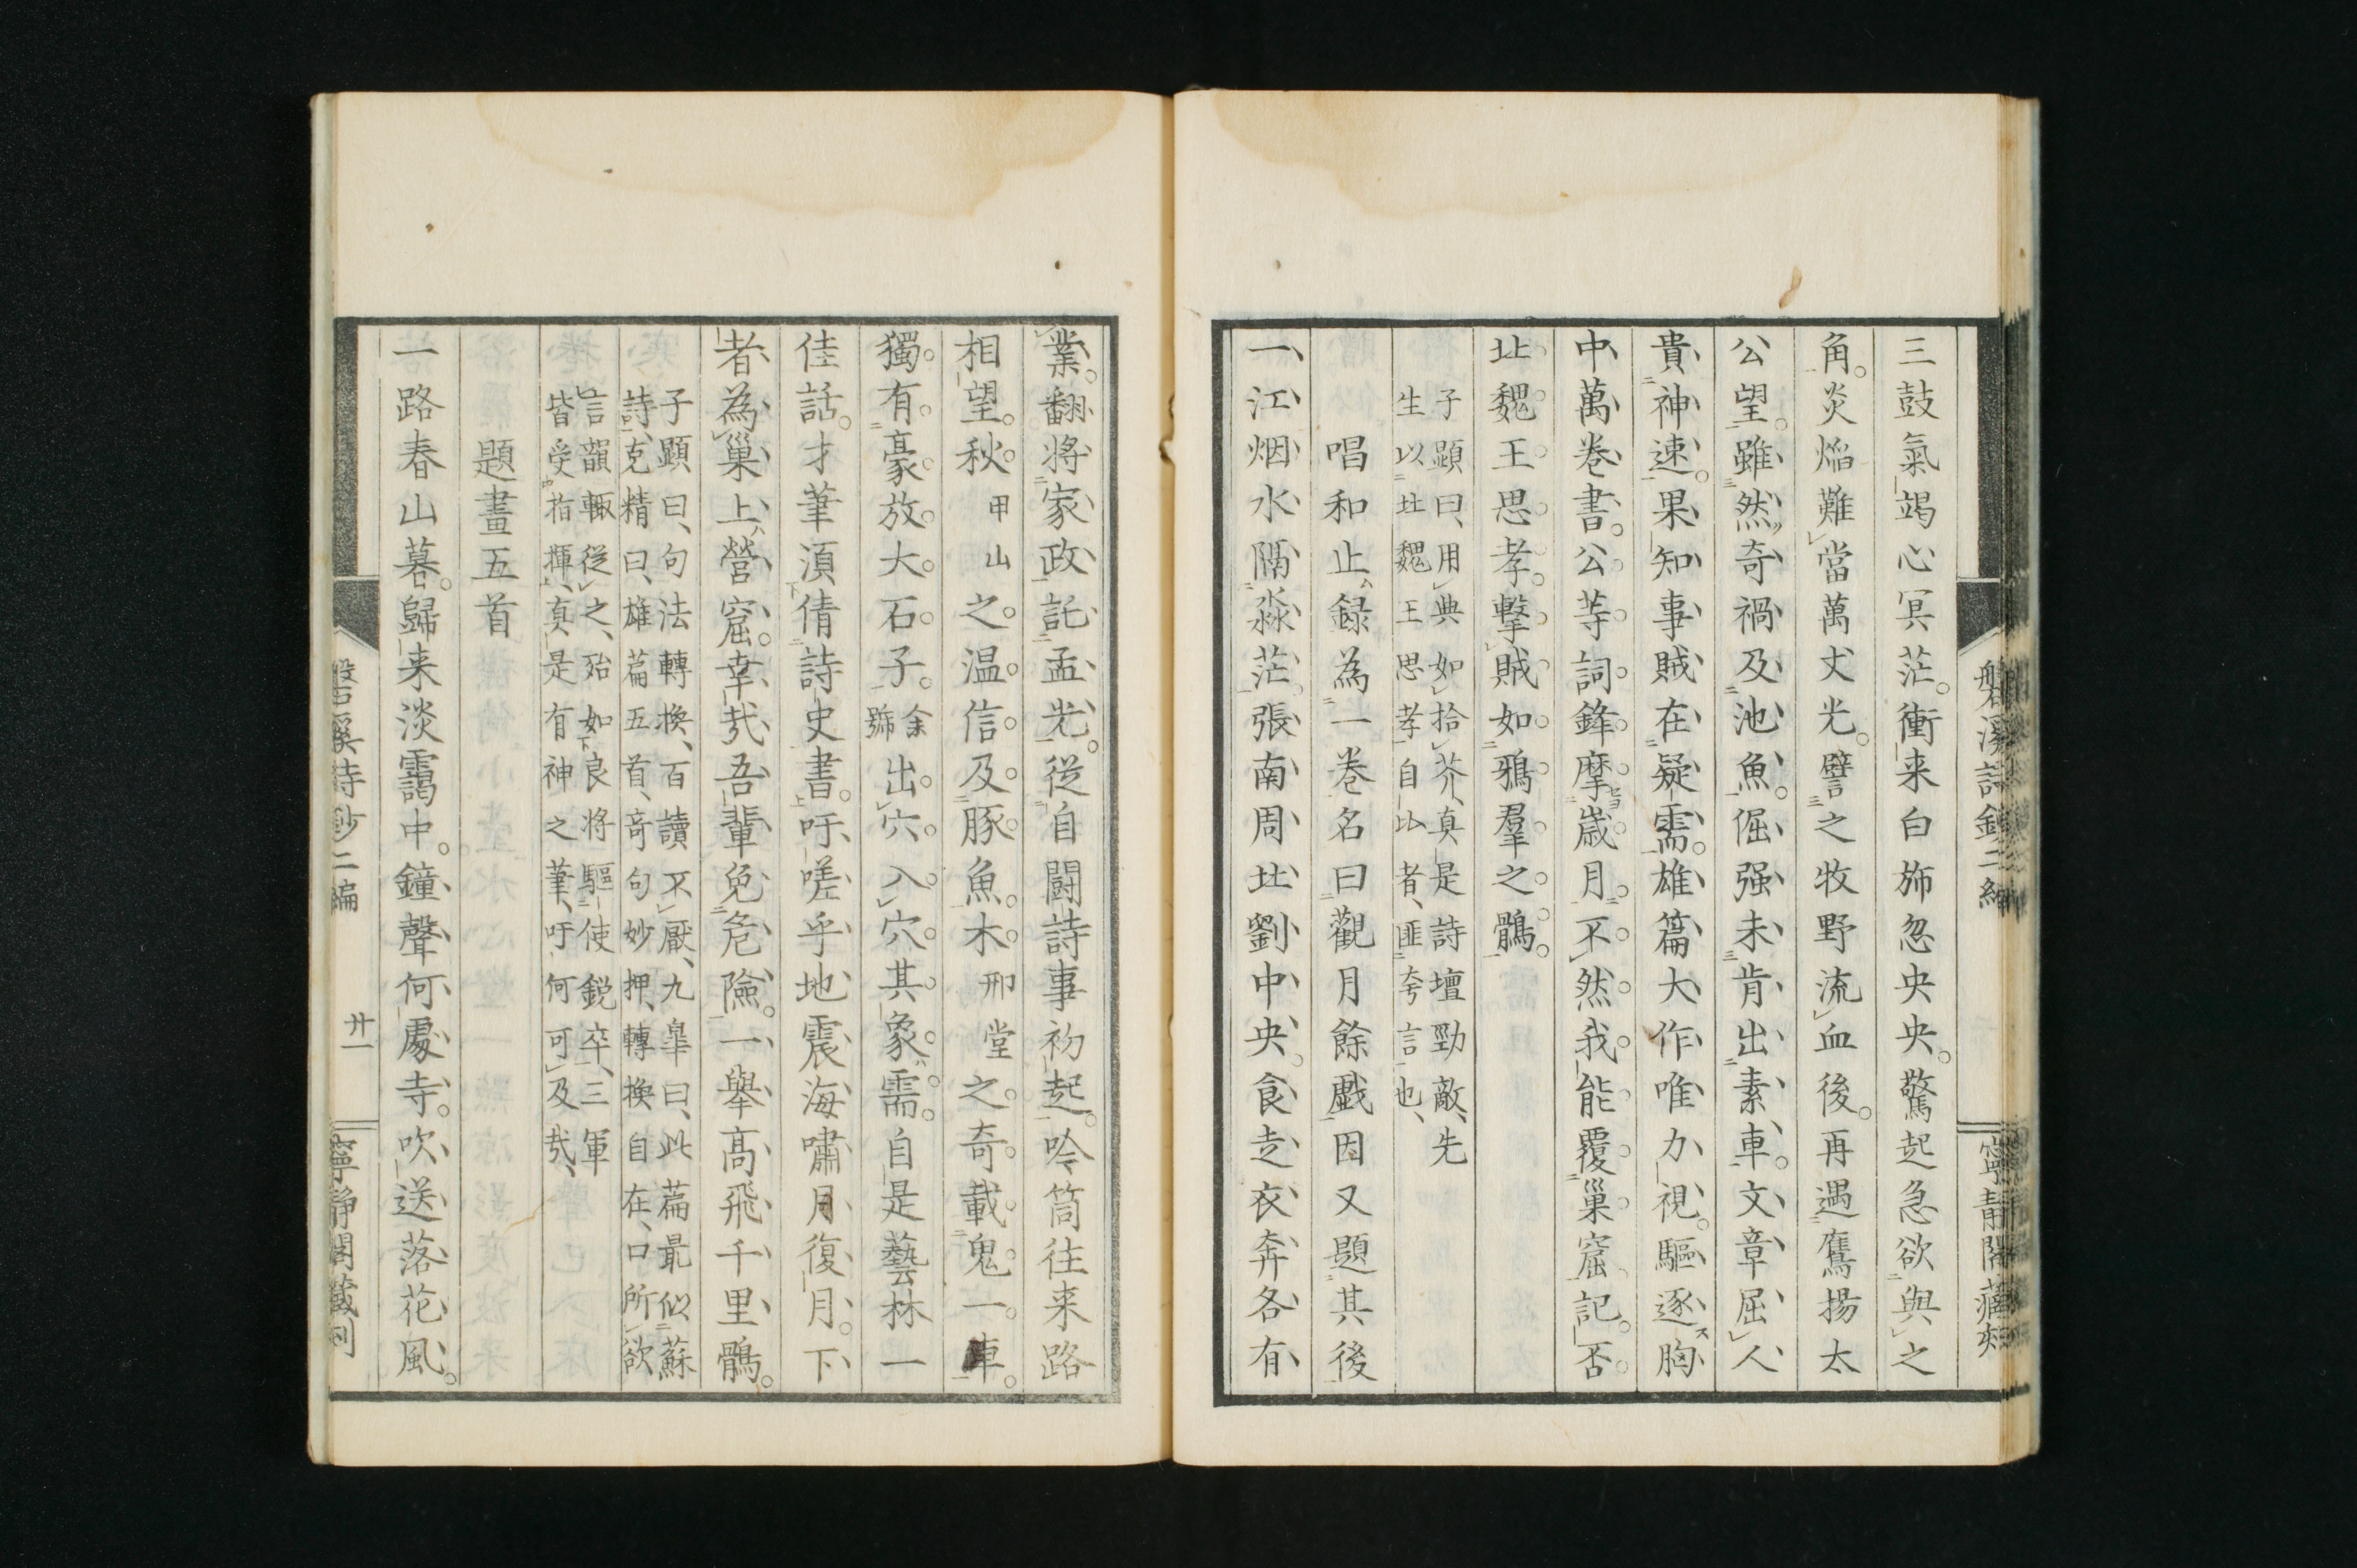 三鼓氣竭心冥茫。衝来白斾忽央央。驚起急欲與之
角。炎焔難當萬丈光。譬之牧野流血後。再遇鷹揚太
公望。雖然奇禍及池魚。倔强未肯出素車。文章屈人
貴神速。果知事賊在疑需。雄篇大作唯力視。驅逐胸
中萬巻書。公等詞鋒摩歳月。不然我能覆巢窟記。否
北魏王思孝。撃賊如鴉羣之鶻。
子顕曰、用典如拾芥、真是詩壇勁敵、先
生以北魏王思孝自比者、匪夸言也、
唱和止録為一巻名曰觀月餘戲因又題其後
一江烟水隔淼茫。張南周北劉中央。食走衣奔各有
業。翻将家政託孟光。従自闘詩事初起。吟筒往来路
相望。秋甲山之。温信及豚魚。木邢堂之。奇載鬼一車。
獨有豪放大石子。余号出穴入穴其象需。自是藝林一
佳話。才筆湏倩詩史書。吁嗟乎地震海嘯月復月。下
者為巢上營窟。幸㢤吾輩免危險。一舉高飛千里鶻。
子顕曰、句法轉換、百讀不厭、九皐曰、此篇最似蘇
詩、克精曰、雄篇五首、奇句妙押、轉換自在、口所欲
言韻輙従之、殆如良将驅使鋭卒、三軍
皆受指揮、真是有神之筆、吁何可及㢤、
題畫五首
一路春山暮。歸来淡靄中。鐘聲何處寺。吹送落花風。
磐溪詩鈔二編
廿一
寧静閣蔵刻